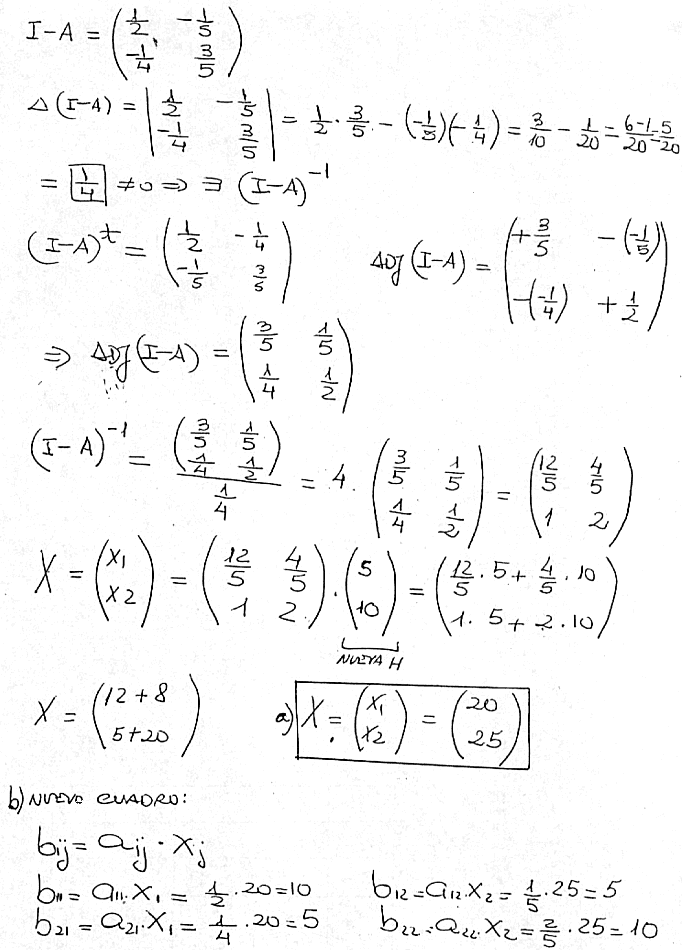 I-A = (1/2 -1/5
-1/4 3/5)
Δ(I-A) = |1/2 -1/5
-1/4 3/5| = 1/2 · 3/5 - (-1/5)(-1/4) = 3/10 - 1/20 = 6-1/20 = 5/20
= 1/4 ≠ 0 ⇒ ∃ (I-A)^-1
(I-A)^t = (1/2 -1/4
-1/5 3/5)
ADJ (I-A) = (+3/5 -(-1/5)
-(-1/4) +1/2)
⇒ ADJ (I-A) = (3/5 1/5
1/4 1/2)
(I-A)^-1 = (3/5 1/5
1/4 1/2) / 1/4 = 4. (3/5 1/5
1/4 1/2) = (12/5 4/5
1 2)
X = (X1
X2) = (12/5 4/5
1 2) · (5
10) = (12/5 · 5 + 4/5 · 10
1 · 5 + 2 · 10)
NUEVA H
X = (12+8
5+20)
a) X = (X1
X2) = (20
25)
b) NUEVO CUADRO:
bij = aij · Xj
b11 = a11·X1 = 1/2 · 20 = 10
b12 = a12·X2 = 1/5 · 25 = 5
b21 = a21·X1 = 1/4 · 20 = 5
b22 = a22·X2 = 2/5 · 25 = 10